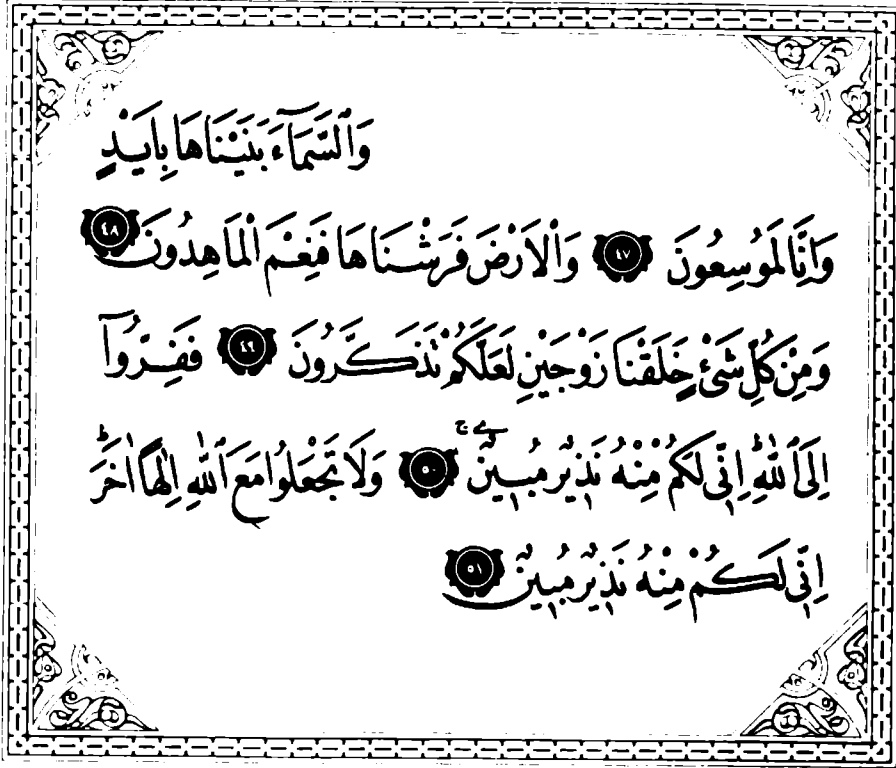 وَالسَّمَاءَ بَنَيْنَاهَا بِاَيْدٍ
وَاِنَّا لَمُوسِعُونَ ٤٧ وَالْاَرْضَ فَرَشْنَاهَا فَنِعْمَ الْمَاهِدُونَ ٤٨
وَمِنْ كُلِّ شَىْءٍ خَلَقْنَا زَوْجَيْنِ لَعَلَّكُمْ تَذَكَّرُونَ ٤٩ فَفِرُّوا
اِلَى اللّٰهِ اِنّٖى لَكُمْ مِنْهُ نَذٖيرٌ مُبٖينٌ ٥٠ وَلَا تَجْعَلُوا مَعَ اللّٰهِ اِلٰهًا اٰخَرَ
اِنّٖى لَكُمْ مِنْهُ نَذٖيرٌ مُبٖينٌ ٥١